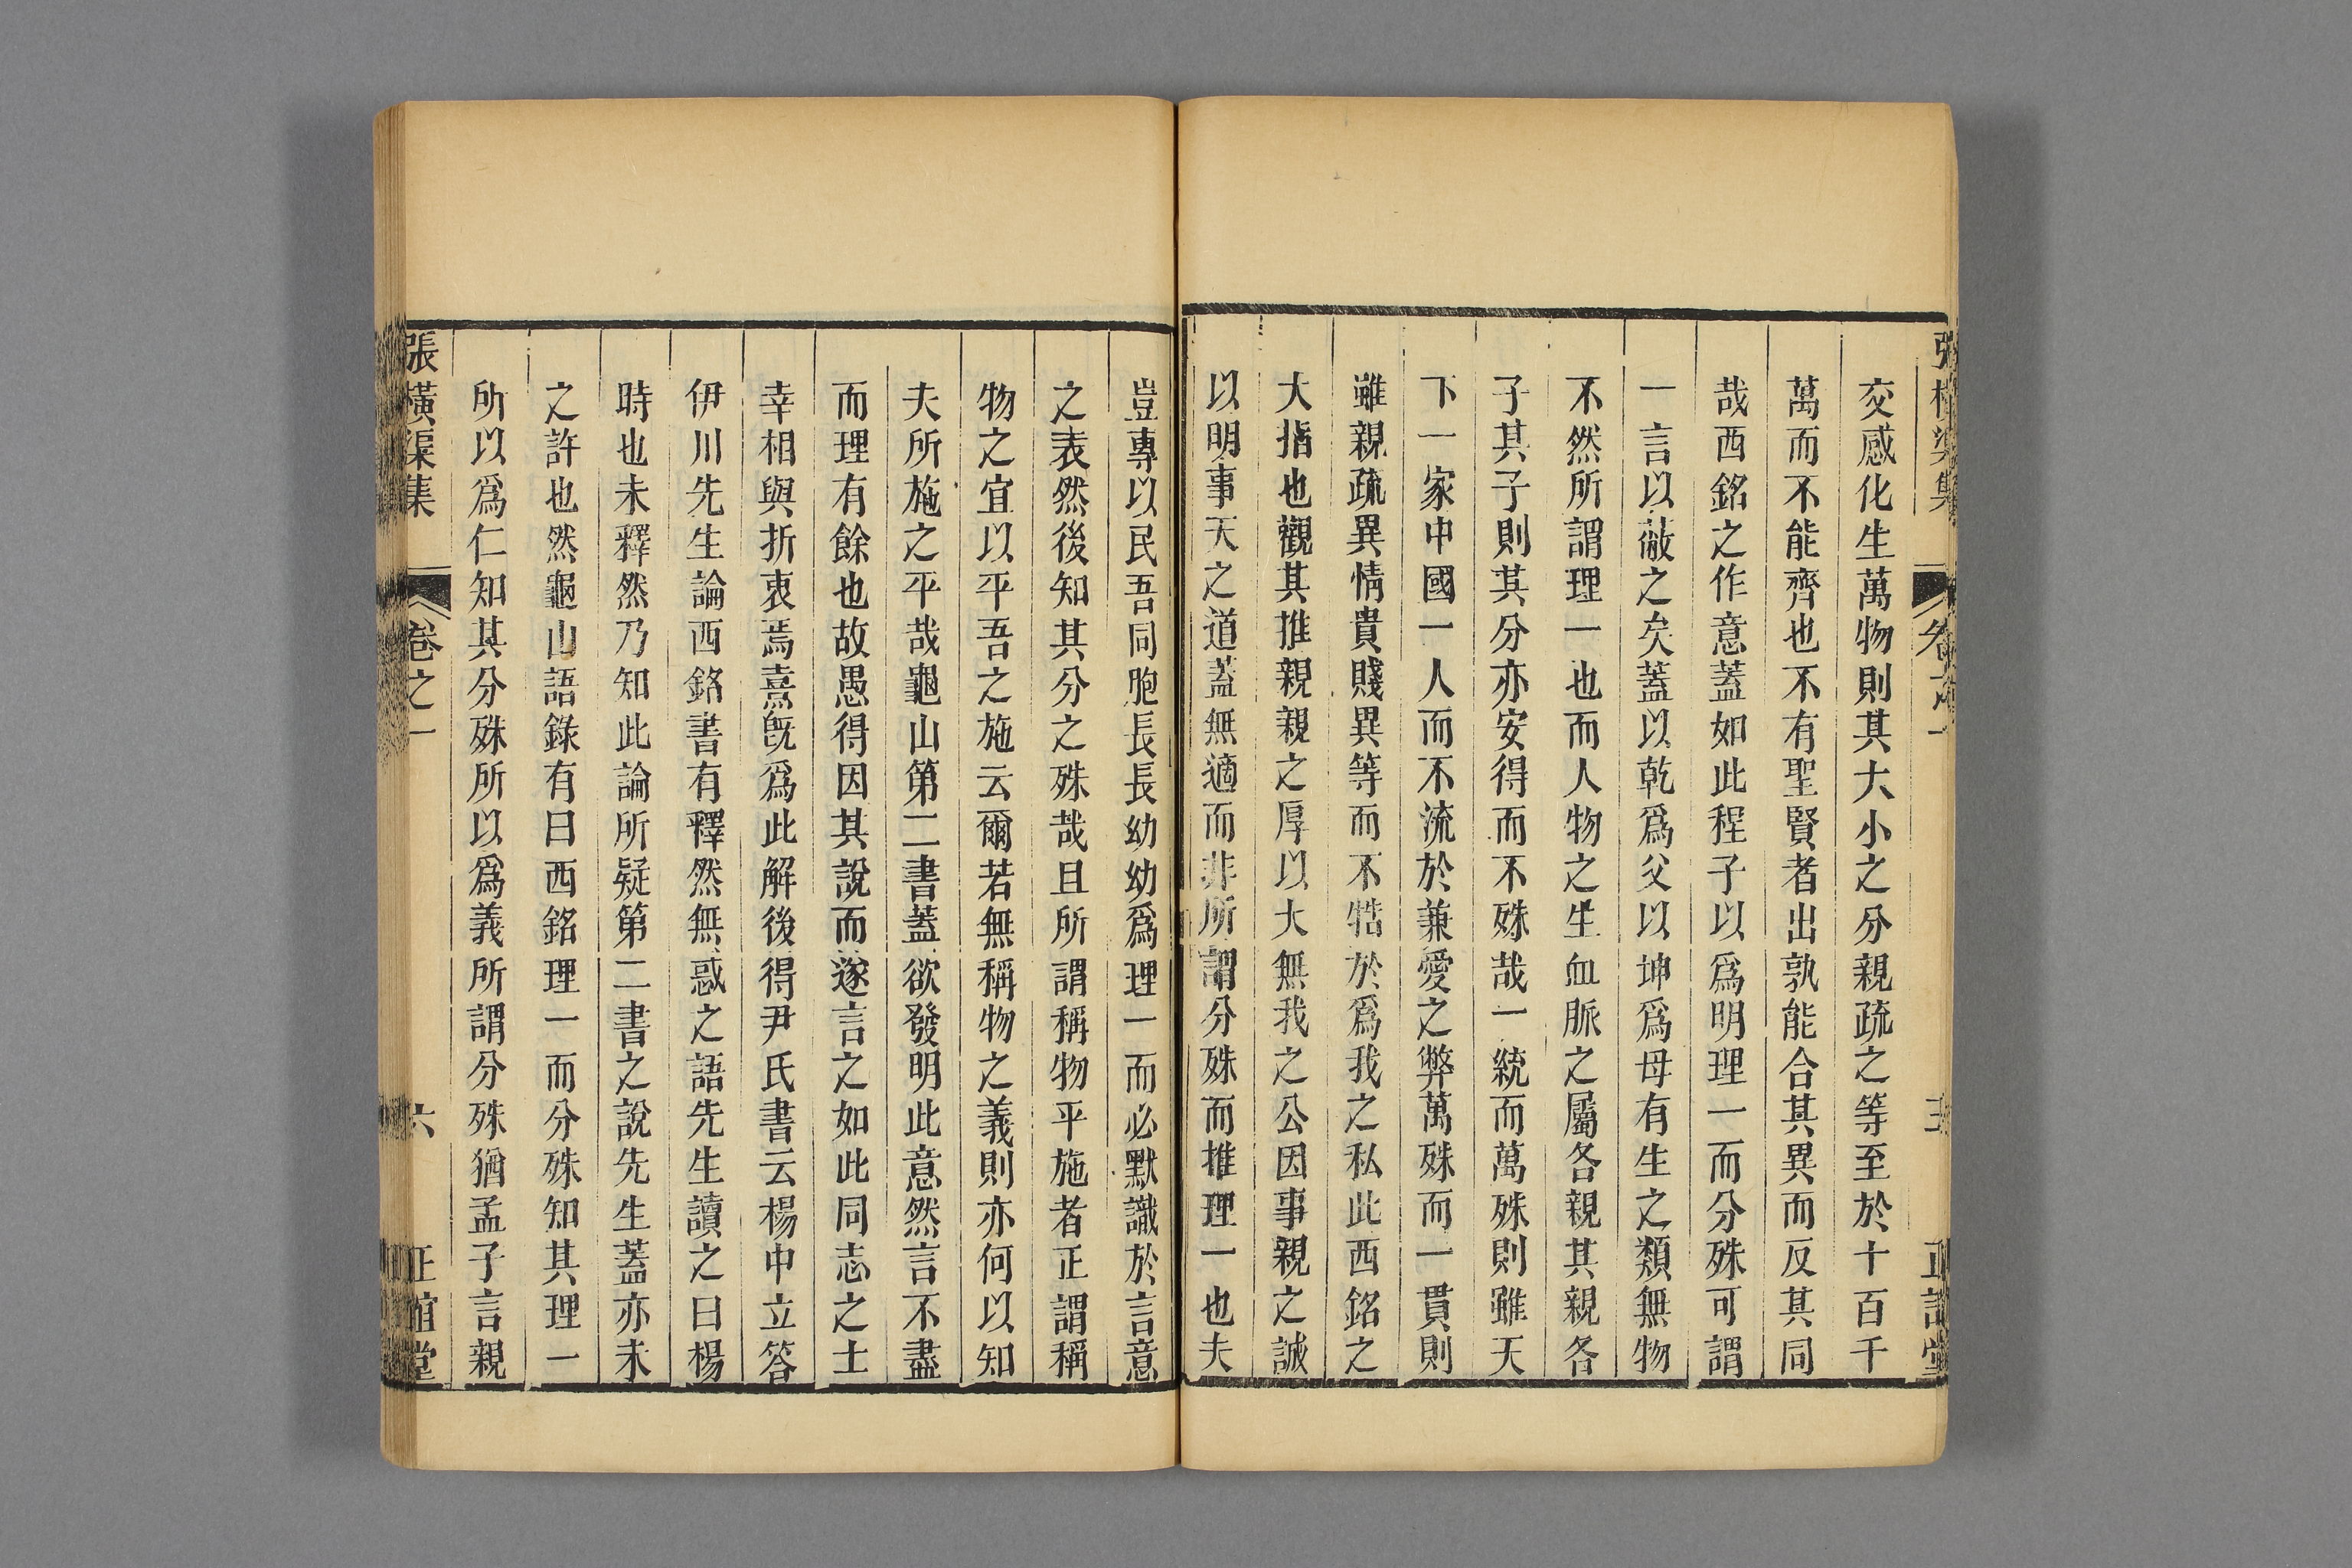 交感化生萬物則其大小之分親疏之等至於十百千
萬而不能齊也不有聖賢者出孰能合其異而反其同
哉西銘之作意蓋如此程子以爲明理一而分殊可謂
一言以蔽之矣蓋以乾爲父以坤爲母有生之類無物
不然所謂理一也而人物之生血脈之屬各親其親各
子其子則其分亦安得而不殊哉一統而萬殊則雖天
下一家中國一人而不流於兼愛之弊萬殊而一貫則
雖親疏異情貴賤異等而不牿於爲我之私此西銘之
大指也觀其推親親之厚以大無我之公因事親之誠
以明事天之道蓋無適而非所謂分殊而推理一也夫
豈專以民吾同胞長長幼幼爲理一而必默識於言意
之表然後知其分之殊哉且所謂稱物平施者正謂稱
物之宜以平吾之施云爾若無稱物之義則亦何以知
夫所施之平哉龜山第二書蓋欲發明此意然言不盡
而理有餘也故愚得因其說而遂言之如此同志之士
幸相與折衷焉熹旣爲此解後得尹氏書云楊中立答
伊川先生論西銘書有釋然無惑之語先生讀之曰楊
時也未釋然乃知此論所疑第二書之說先生蓋亦未
之許也然龜山語錄有曰西銘理一而分殊知其理一
所以爲仁知其分殊所以爲義所謂分殊猶孟子言親
張橫渠集 卷之一 六 正誼堂